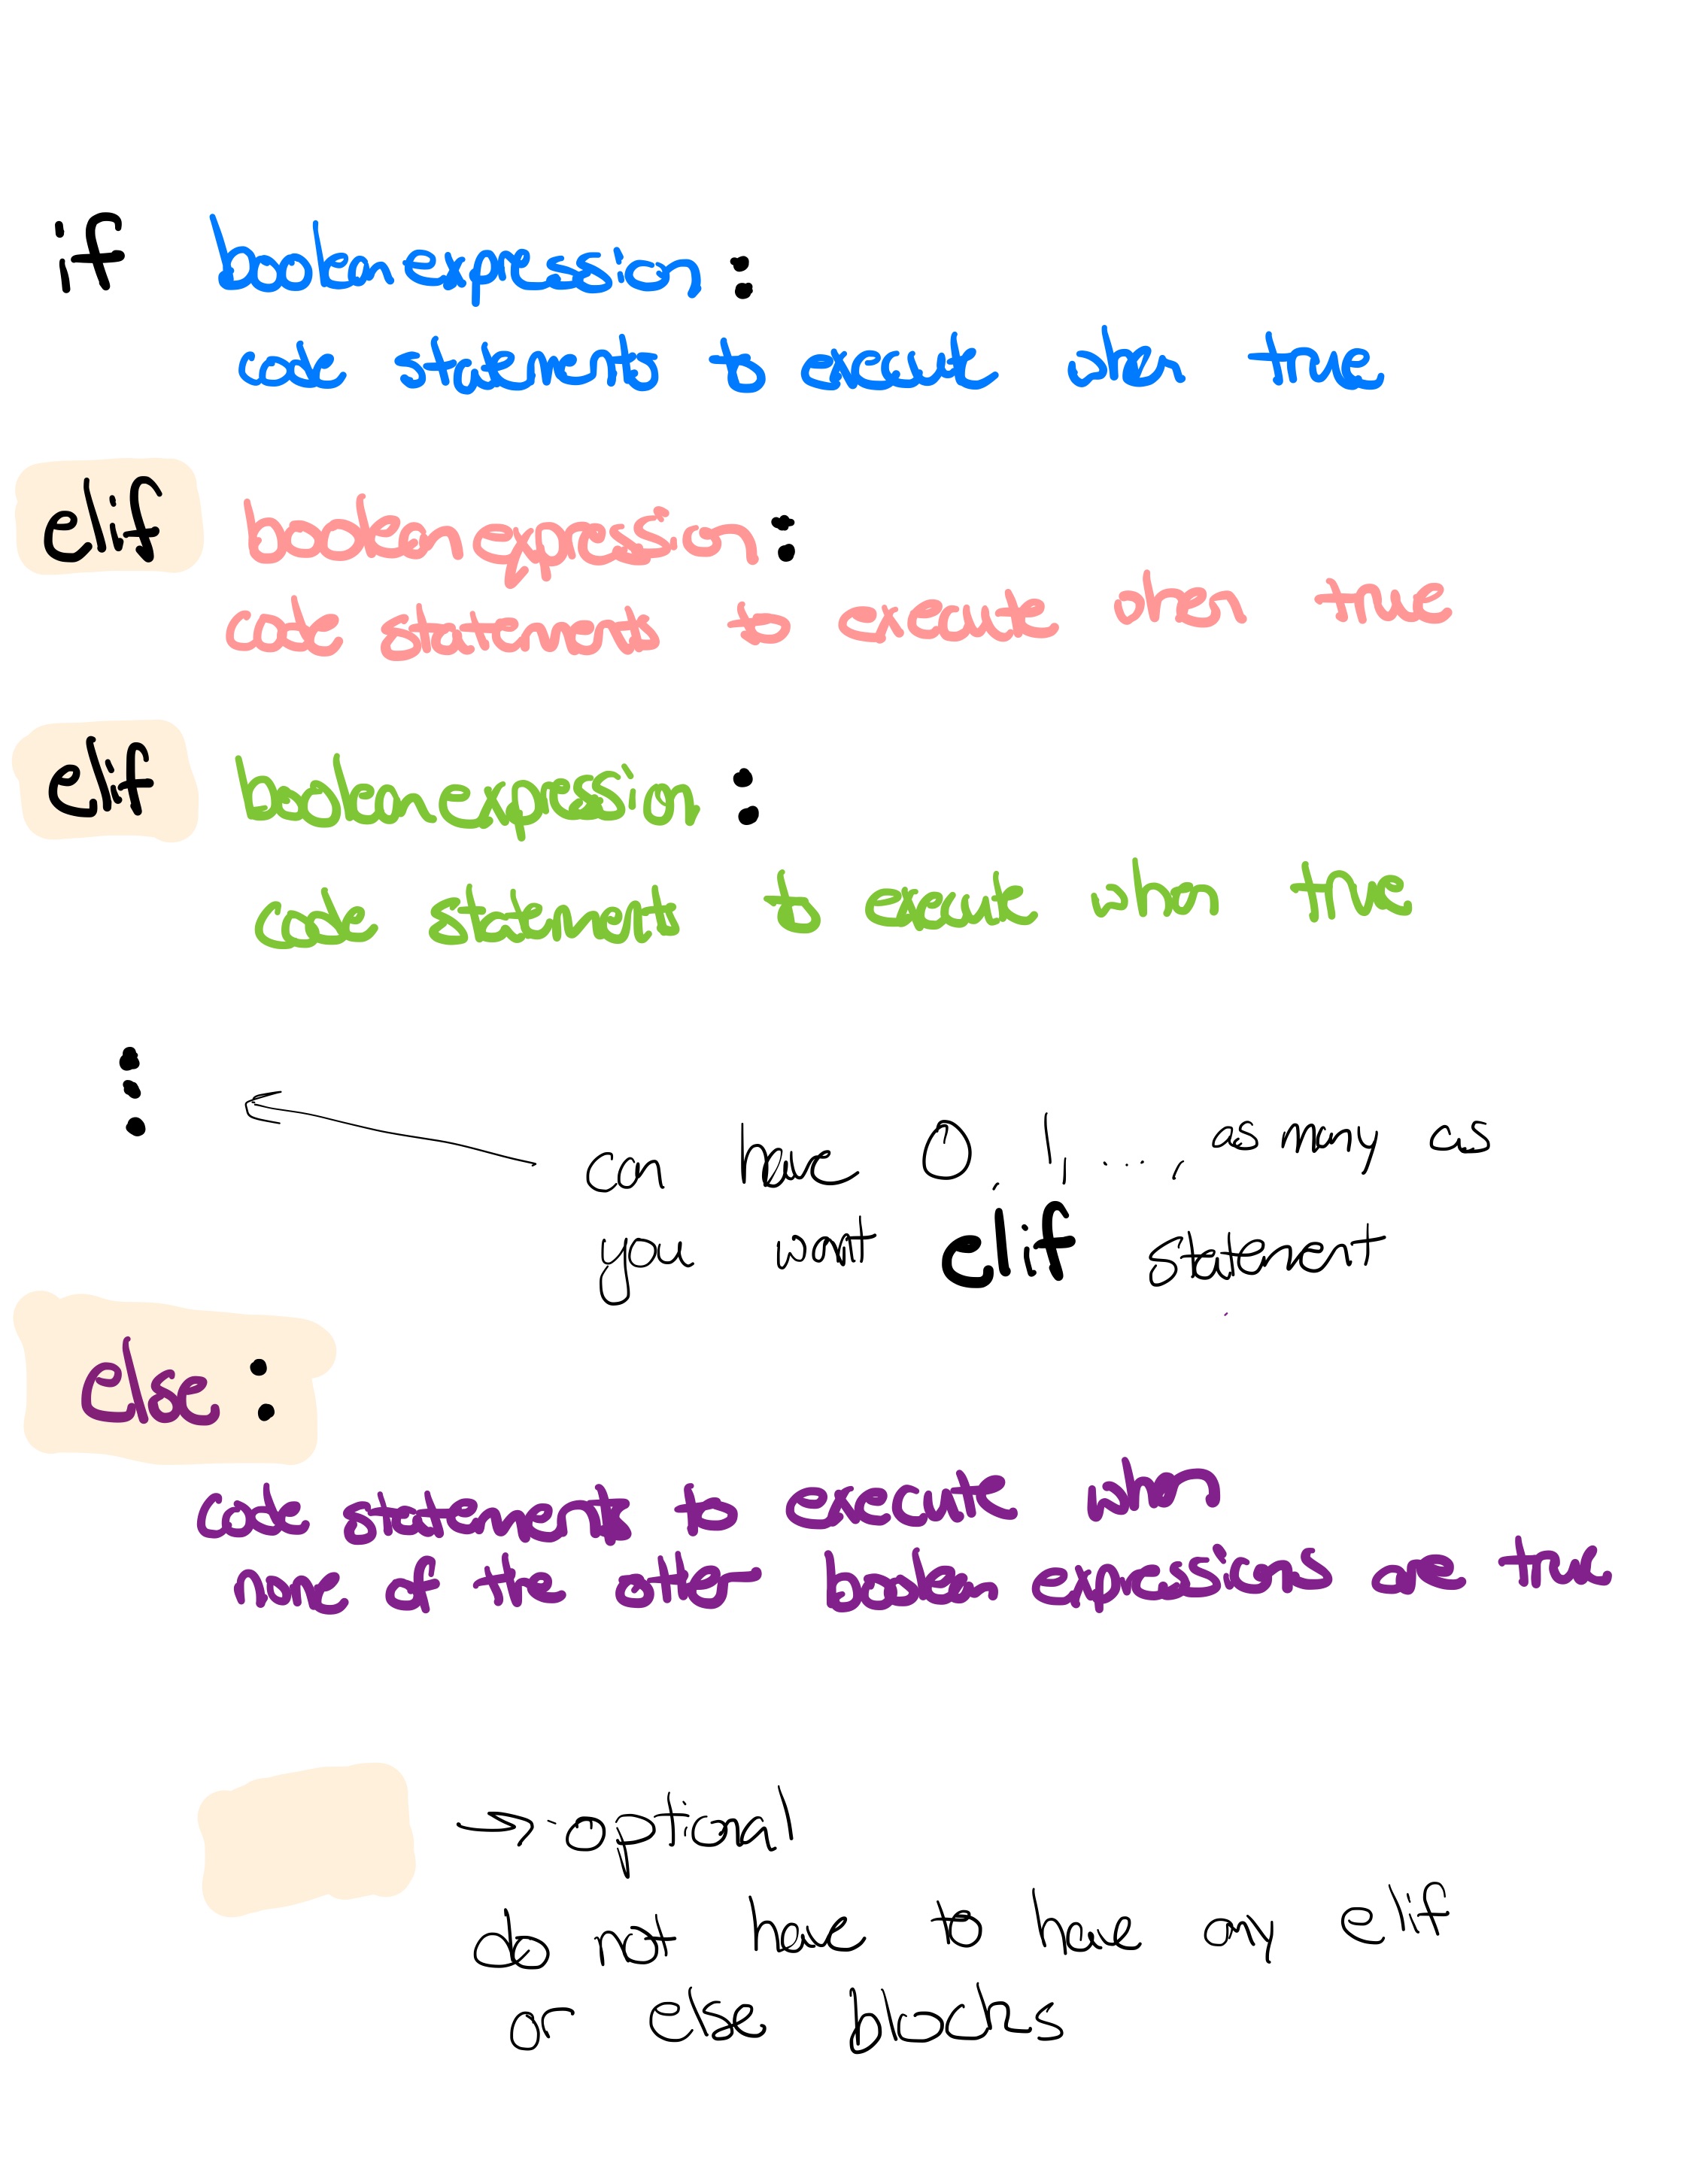 if boolean expression :
code statements to execute when true
elif boolean expression :
code statements to execute when true
elif boolean expression :
code statements to execute when true
⋮
can have 0, 1, ..., as many as
you want elif statement
else :
code statements to execute when
none of the other boolean expressions are true
→ optional
do not have to have any elif
or else blocks